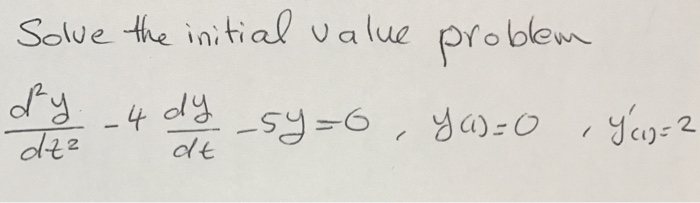 Solve the initial value problem
d²y/dt² - 4 dy/dt - 5y = 0 , y(1) = 0 , y'(1) = 2